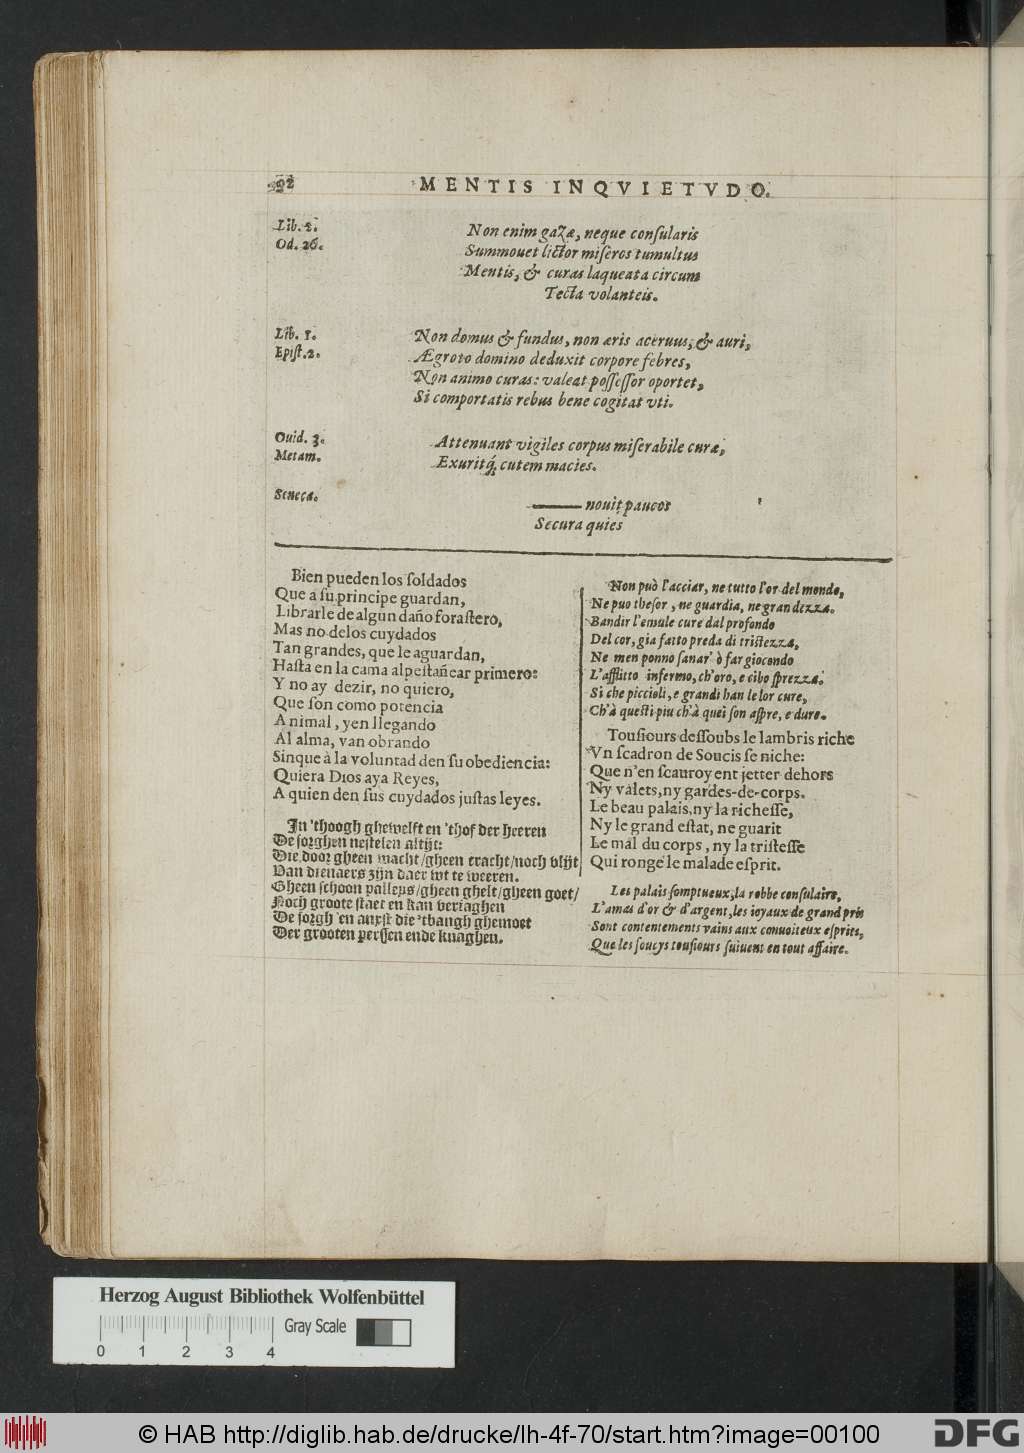 92 MENTIS INQVIETVDO.
Lib. 2.
Od. 26.
Non enim gazæ, neque conſularis
Summouet lictor miſeros tumultus
Mentis, & curas laqueata circum
Tecta volanteis.
Lib. 1.
Epiſt. 2.
Non domus & fundus, non æris aceruus, & auri,
Ægroto domino deduxit corpore febres,
Non animo curas: valeat poſſeſſor oportet,
Si comportatis rebus bene cogitat vti.
Ouid. 3.
Metam.
Attenuant vigiles corpus miſerabile curæ,
Exuritq́; cutem macies.
Seneca.
—— nouit paucos
Secura quies
Bien pueden los ſoldados
Que a ſu principe guardan,
Librarle de algun daño foraſtero,
Mas no delos cuydados
Tan grandes, que le aguardan,
Haſta en la cama alpeſtañear primero:
Y no ay dezir, no quiero,
Que ſon como potencia
Animal, y en llegando
Al alma, van obrando
Sinque à la voluntad den ſu obediencia:
Quiera Dios aya Reyes,
A quien den ſus cuydados juſtas leyes.
In 'thoogh ghewelft en 'thof der heeren
De ſorghen neſtelen altijt:
Die door gheen macht/gheen cracht/noch vlijt
Van dienaers zijn daer wt te weeren.
Gheen ſchoon palleys/gheen ghelt/gheen goet/
Noch groote ſtaet en kan veriaghen
De ſorgh 'en anxſt die 'tbangh ghemoet
Der grooten perſſen ende knaghen.
Non può l'acciar, ne tutto l'or del mondo,
Ne puo theſor, ne guardia, ne grandezza.
Bandir l'emule cure dal profondo
Del cor, gia fatto preda di triſtezza,
Ne men ponno ſanar' ò far giocondo
L'afflitto infermo, ch'oro, e cibo ſprezza:
Si che piccioli, e grandi han le lor cure,
Ch'à queſti piu ch'à quei ſon aſpre, e dure.
Touſiours deſſoubs le lambris riche
Vn ſcadron de Soucis ſe niche:
Que n'en ſcauroyent jetter dehors
Ny valets, ny gardes-de-corps.
Le beau palais, ny la richeſſe,
Ny le grand eſtat, ne guarit
Le mal du corps, ny la triſteſſe
Qui ronge le malade eſprit.
Les palais ſomptueux, la robbe conſulaire,
L'amas d'or & d'argent, les ioyaux de grand pris
Sont contentements vains aux conuoiteux eſprits,
Que les ſoucys touſiours ſuiuent en tout affaire.
Herzog August Bibliothek Wolfenbüttel
Gray Scale
0 1 2 3 4
© HAB http://diglib.hab.de/drucke/lh-4f-70/start.htm?image=00100
DFG